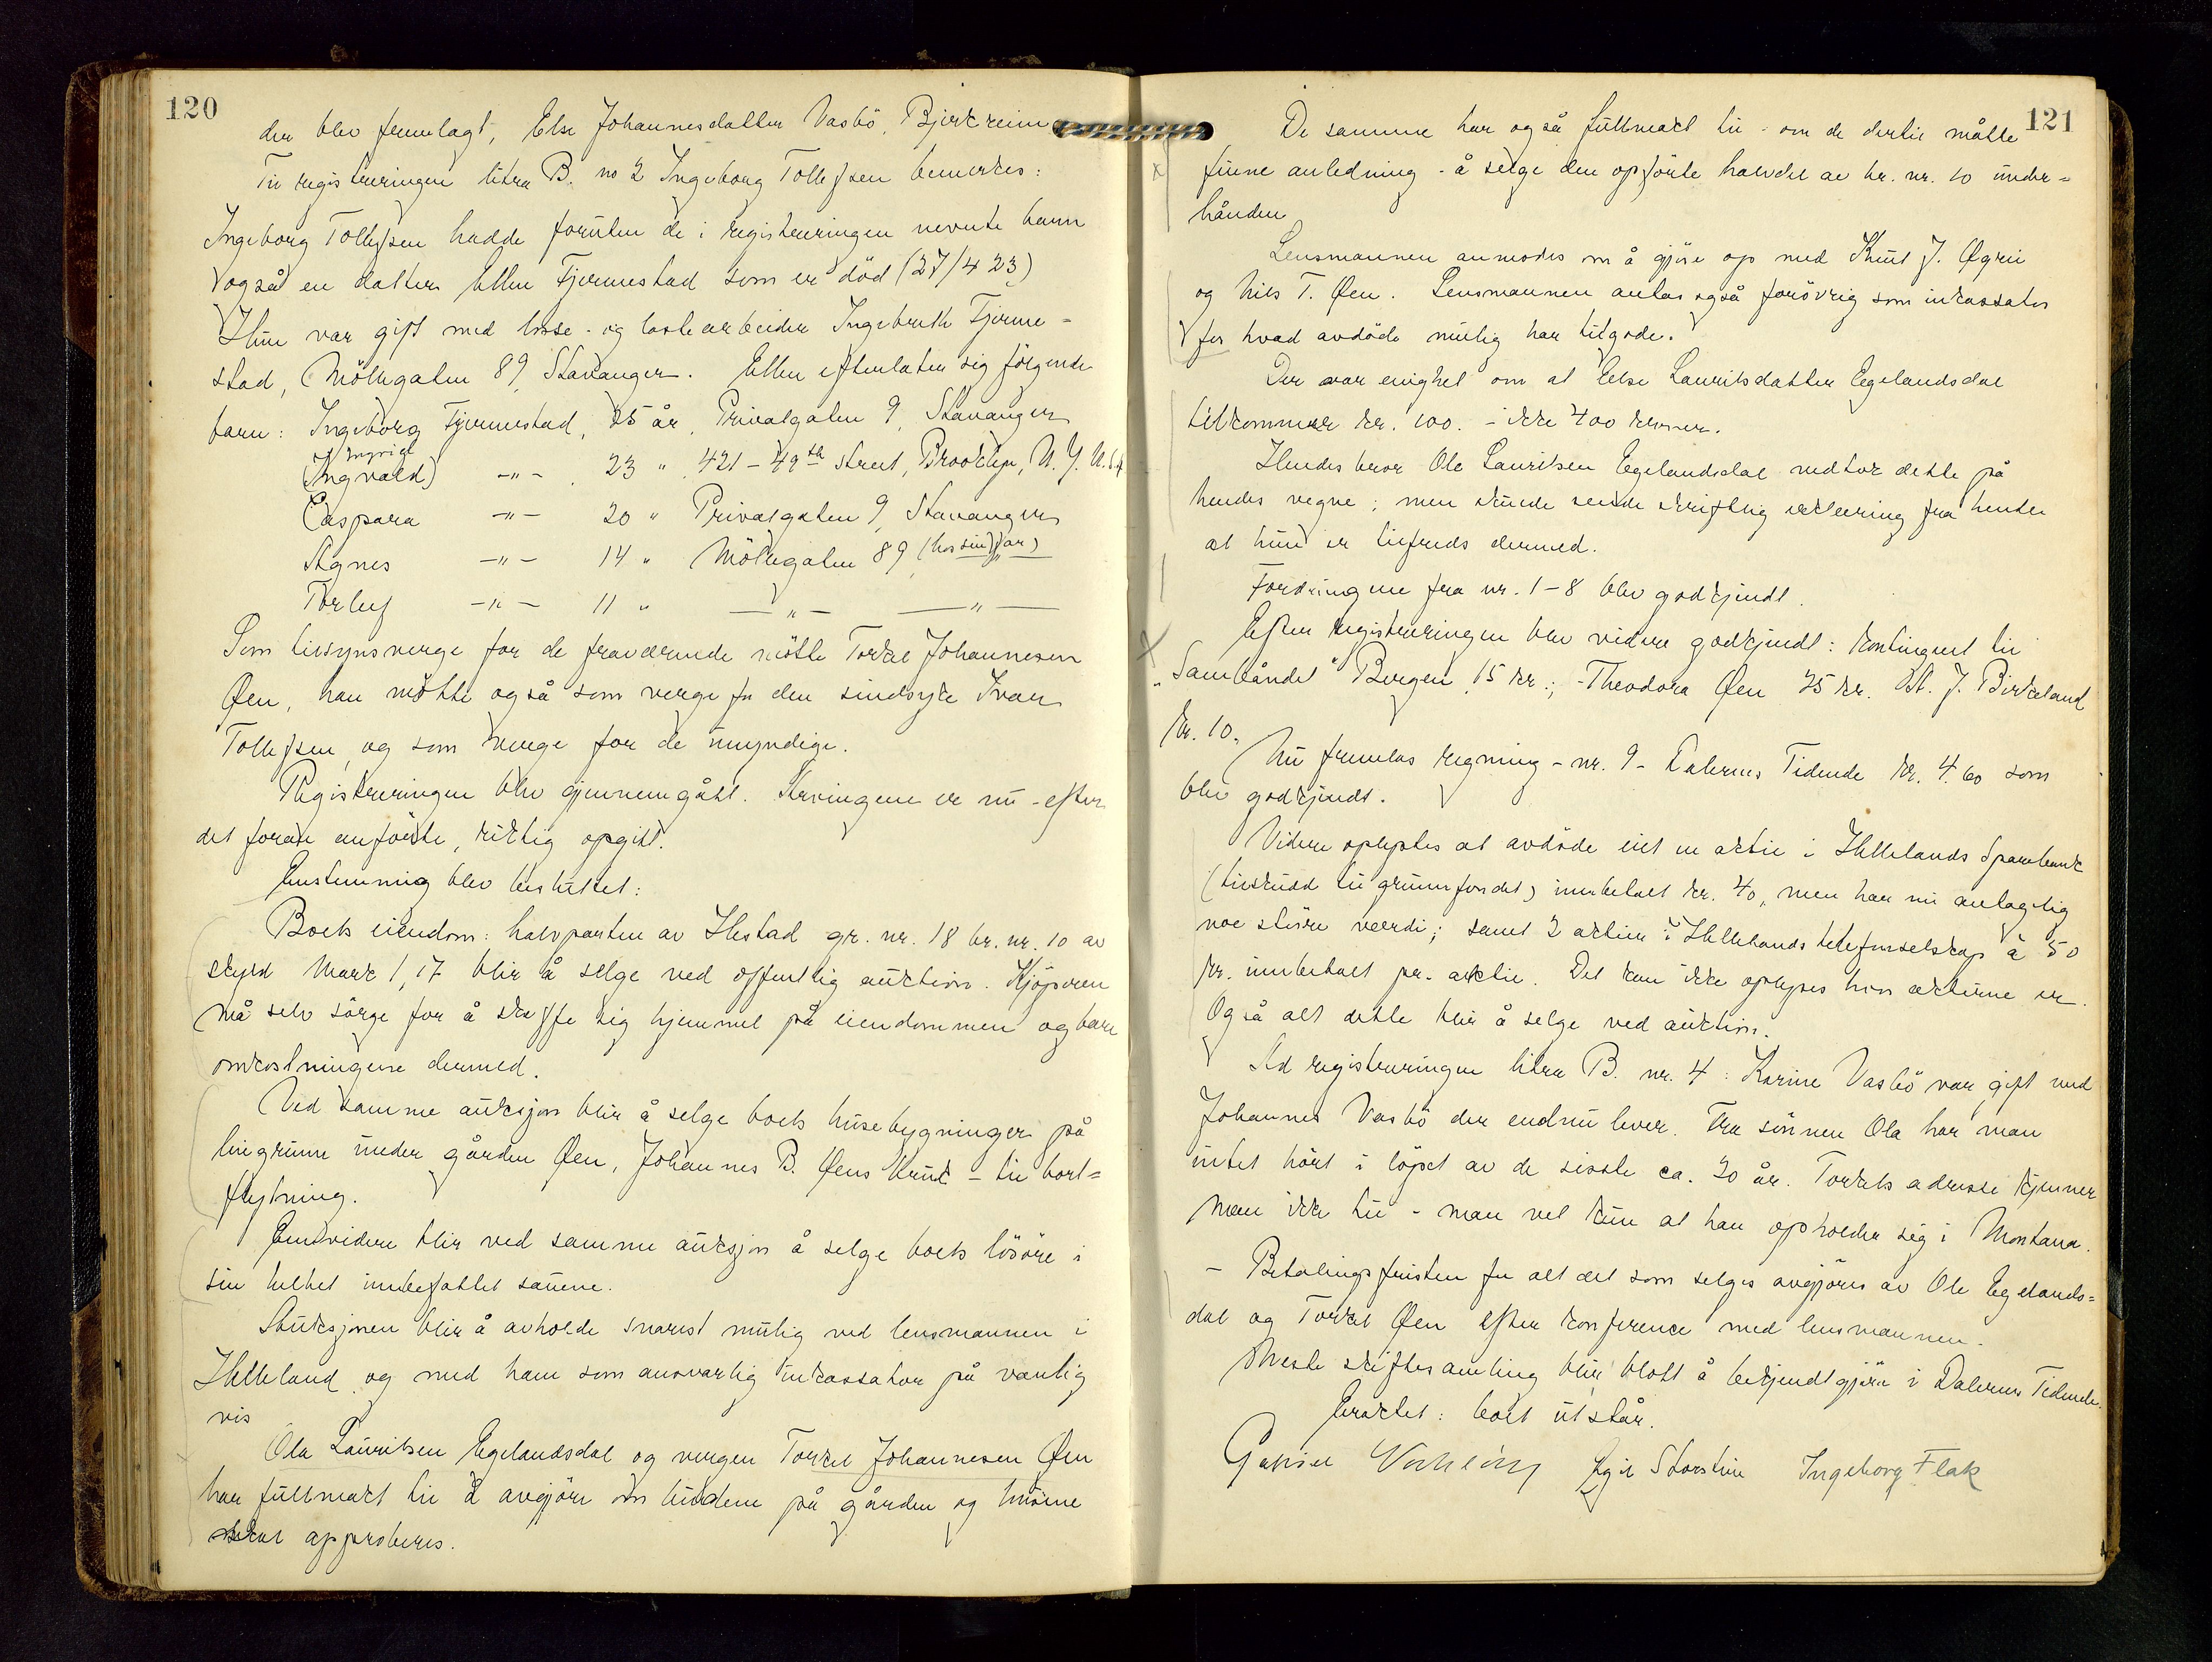 120
der blev fremlagt, Else Johannesdatter Vasbö, Bjerkreim
Til registreringen litra B. no 2 Ingeborg Tollefsen bemerkes:
Ingeborg Tollefsen hadde foruten de i registreringen nevnte barn
også en datter Ellen Fjermestad som er död (27/4 23)
Hun var gift med losse- og lastearbeider Ingebreth Fjerme-
stad, Möllegaten 89, Stavanger. Ellen efterlater sig fölgende
barn: Ingeborg Fjermestad, 25 år, Privatgaten 9, Stavanger
(Ingvald) -"- 23 " 421 - 49th Street, Brooklyn, N. Y. U.S.A
Caspara -"- 20 " Privatgaten 9, Stavanger
Agnes -"- 14 " Möllegaten 89 (hos sin far)
Torleif -"- 11 " -"- -"-
Som tilsynsverge for de fraværende mötte Torkel Johannesen
Øen, han mötte også som verge for den sindsyke Ivar
Tollefsen, og som verge for de umyndige.
Registreringen blev gjennemgått. Arvingene er nu - efter
det foran anförte, riktig opgitt.
Enstemmig blev besluttet:
Boets eiendom: halvparten av Ilestad gr. nr. 18 br. nr. 10 av
skyld Mark 1,17 blir å selge ved offentlig auktion. Kjöperen
må selv sörge for å skaffe sig hjemmel på eiendommen og bære
omkostningene dermed.
Ved samme auksjon blir å selge boets husebygninger på
leiegrunn under gården Øen, Johannes B. Øens bruk - til bort-
flytning.
Enndvidere blir ved samme auksjon å selge boets lösöre i
sin helhet innbefattet sauene.
Auksjonen blir å avholde snarest mulig ved lensmannen i
Helleland og med ham som ansvarlig inkassator på vanlig
vis
Ola Lauritsen Egelandsdal og vergen Torkel Johannesen Øen
har fullmakt til å avgjöre om budene på gården og husene
skal approberes.
121
De samme har også fullmakt til - om de dertil måtte
finne anledning - å selge den opförte halvdel av br. nr. 10 under-
hånden
Lensmannen anmodes om å gjöre op med Knut J. Øgrei
og Nils T. Øen. Lensmannen antas også forövrig som inkassator
for hvad avdöde mulig har tilgode.
Der var enighet om at Else Lauritsdatter Egelandsdal
tilkommer kr. 100. - ikke 400 kroner.
Hendes bror Ole Lauritsen Egelandsdal vedtok dette på
hendes vegne; men skulde sende skriftlig erklæring fra hende
at hun er tilfreds dermed.
Fordringene fra nr. 1-8 blev godkjendt.
Efter registreringen blev videre godkjendt: kontingent til
"Sambåndet" Bergen 15 kr.; - Theodora Øen 75 kr. J. Birkeland
kr. 10.
Nu fremlas regning - nr. 9 - Dalernes Tidende kr. 4.60 som
blev godkjendt.
Videre oplystes at avdöde eiet en aktie i Hellelands Sparebank
(tilskudd til grunnfondet) innbetalt kr. 40, men har nu antagelig
noe större værdi; samt 2 aktier i Hellelands telefonselskap à 50
kr. innbetalt pr. aktie. Det kan ikke oplyses hvor aktiene er.
Også alt dette blir å selge ved auktion.
Ad registreringen litra B. nr. 4: Karine Vasbö var gift med
Johannes Vasbö der endnu lever. Fra sönnen Ola har man
intet hört i löpet av de sisste ca. 20 år. Torkels adresse kjenner
man ikke til - man vet kun at han opholder sig i Montana.
- Betalingsfristen for alt det som selges avgjöres av Ole Egelands-
dal og Torkel Øen efter konference med lensmannen.
Neste skiftesamling blir blott å bekjendtgjöre i Dalernes Tidende.
Eraktet: boet utstår.
Egil Storstein Ingeborg Flak